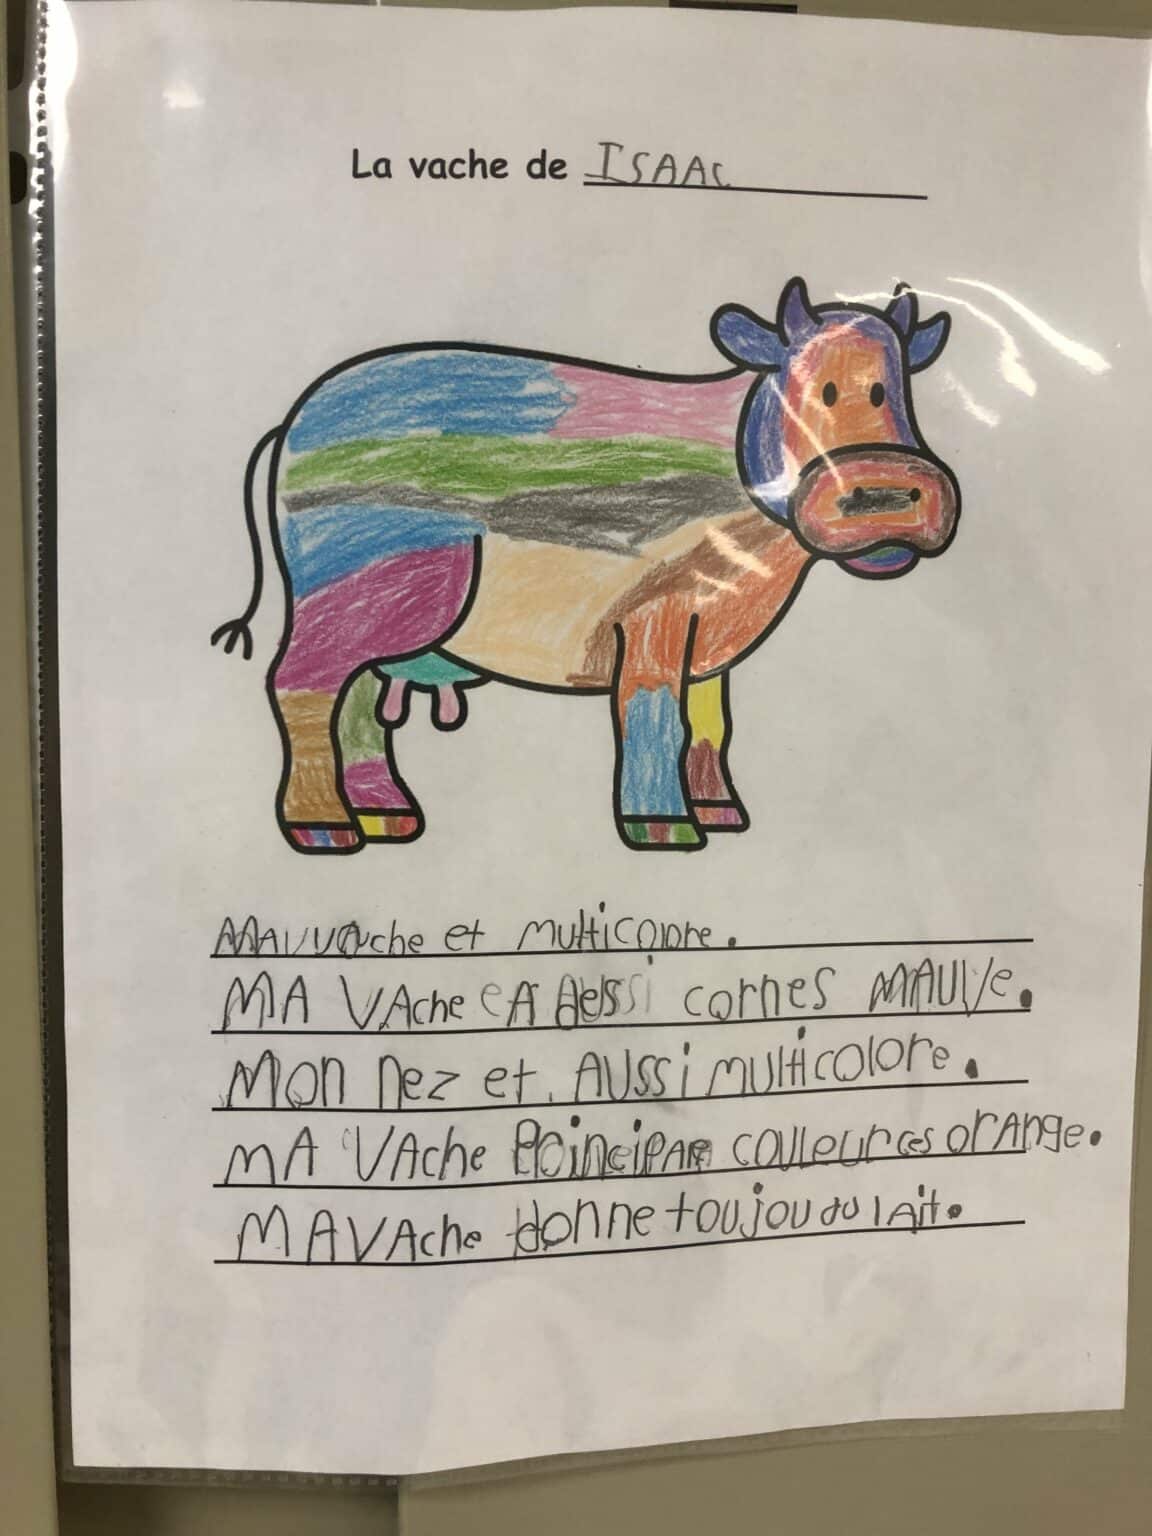 La vache de ISAAC
MA vache et multicolore.
MA VAche A cornes MAUVe.
MON nez et. AUSSi multicolore.
MA VAche couleur ces orange.
MA VAche donne toujou du lAit.